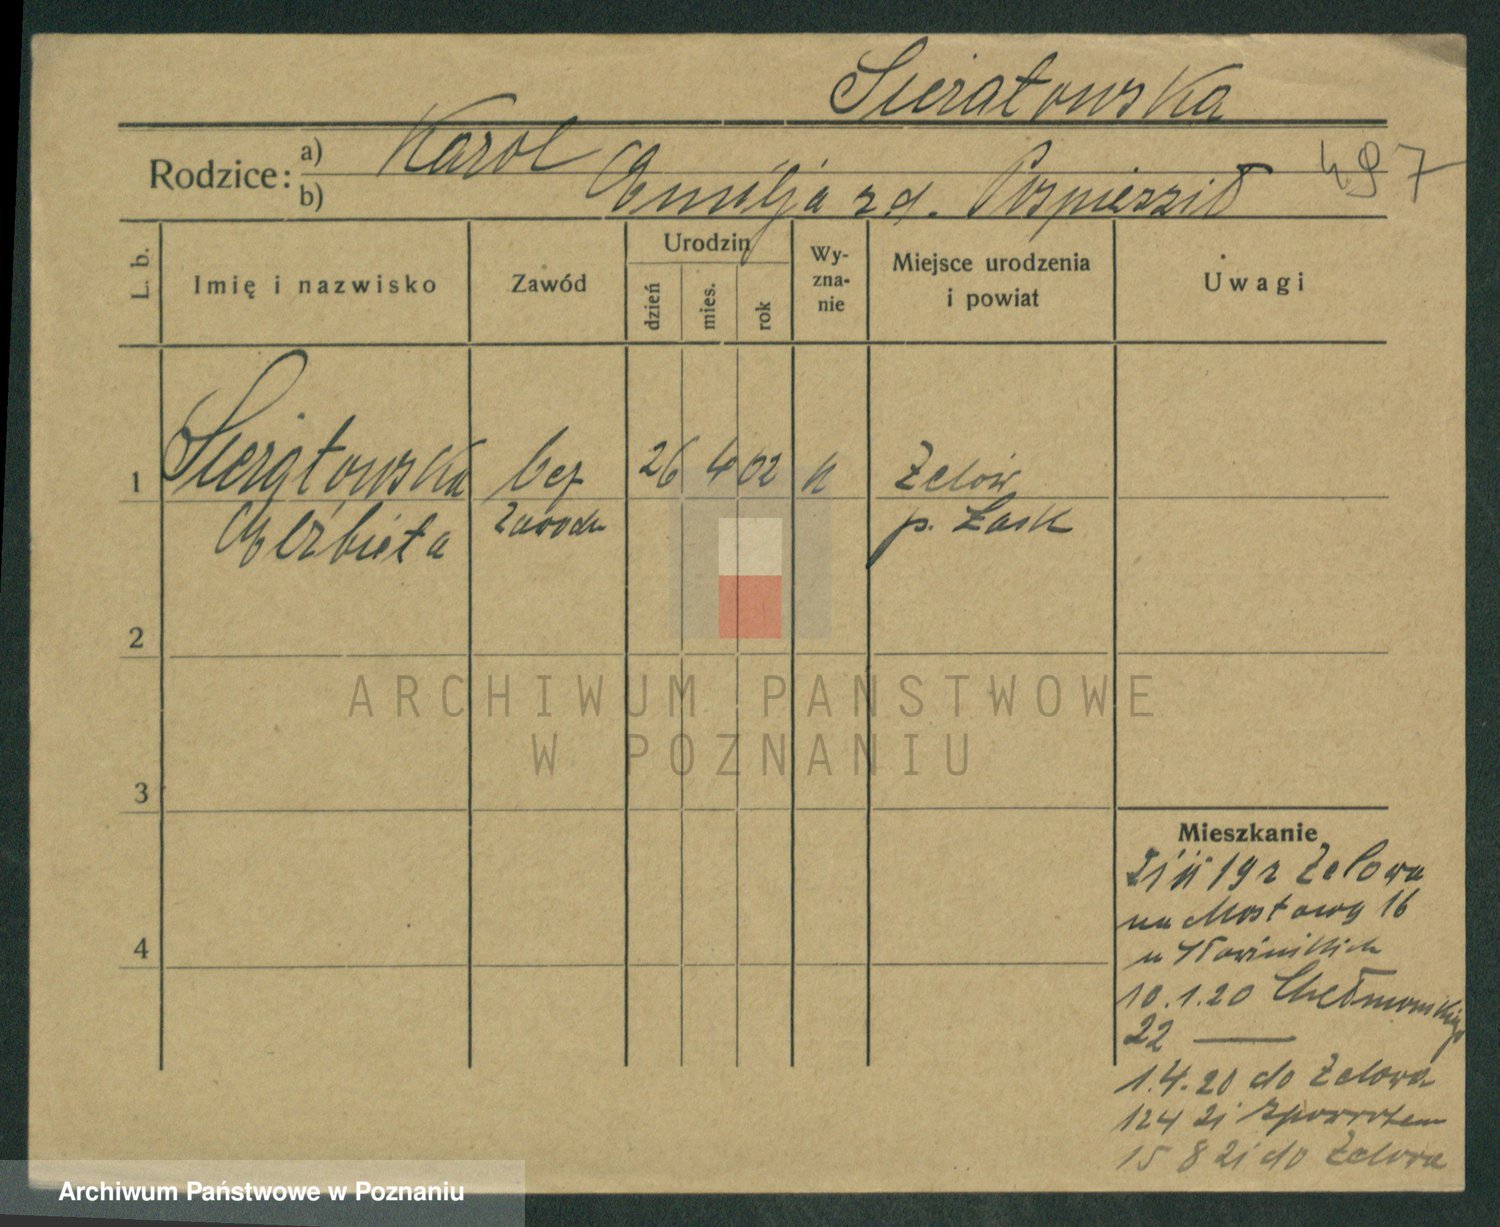 Sierątowska
Rodzice:
a) Karol
b) Emilja zd. Pospiesził
497
L. b.
Imię i nazwisko
Zawód
Urodzin
dzień
mies.
rok
Wy-
zna-
nie
Miejsce urodzenia
i powiat
Uwagi
1
Sierątowska
Elżbieta
bez
zawodu
26
4
02
k
Zelów
p. Łask
2
3
4
Mieszkanie
19 z Zelowa
na Mostową 16
u
10.1.20 Chełmońskiego
22 —
1.4.20 do Zelowa
12 4 21 zpowrotem
15 8 21 do Zelowa
ARCHIWUM PAŃSTWOWE
W POZNANIU
Archiwum Państwowe w Poznaniu